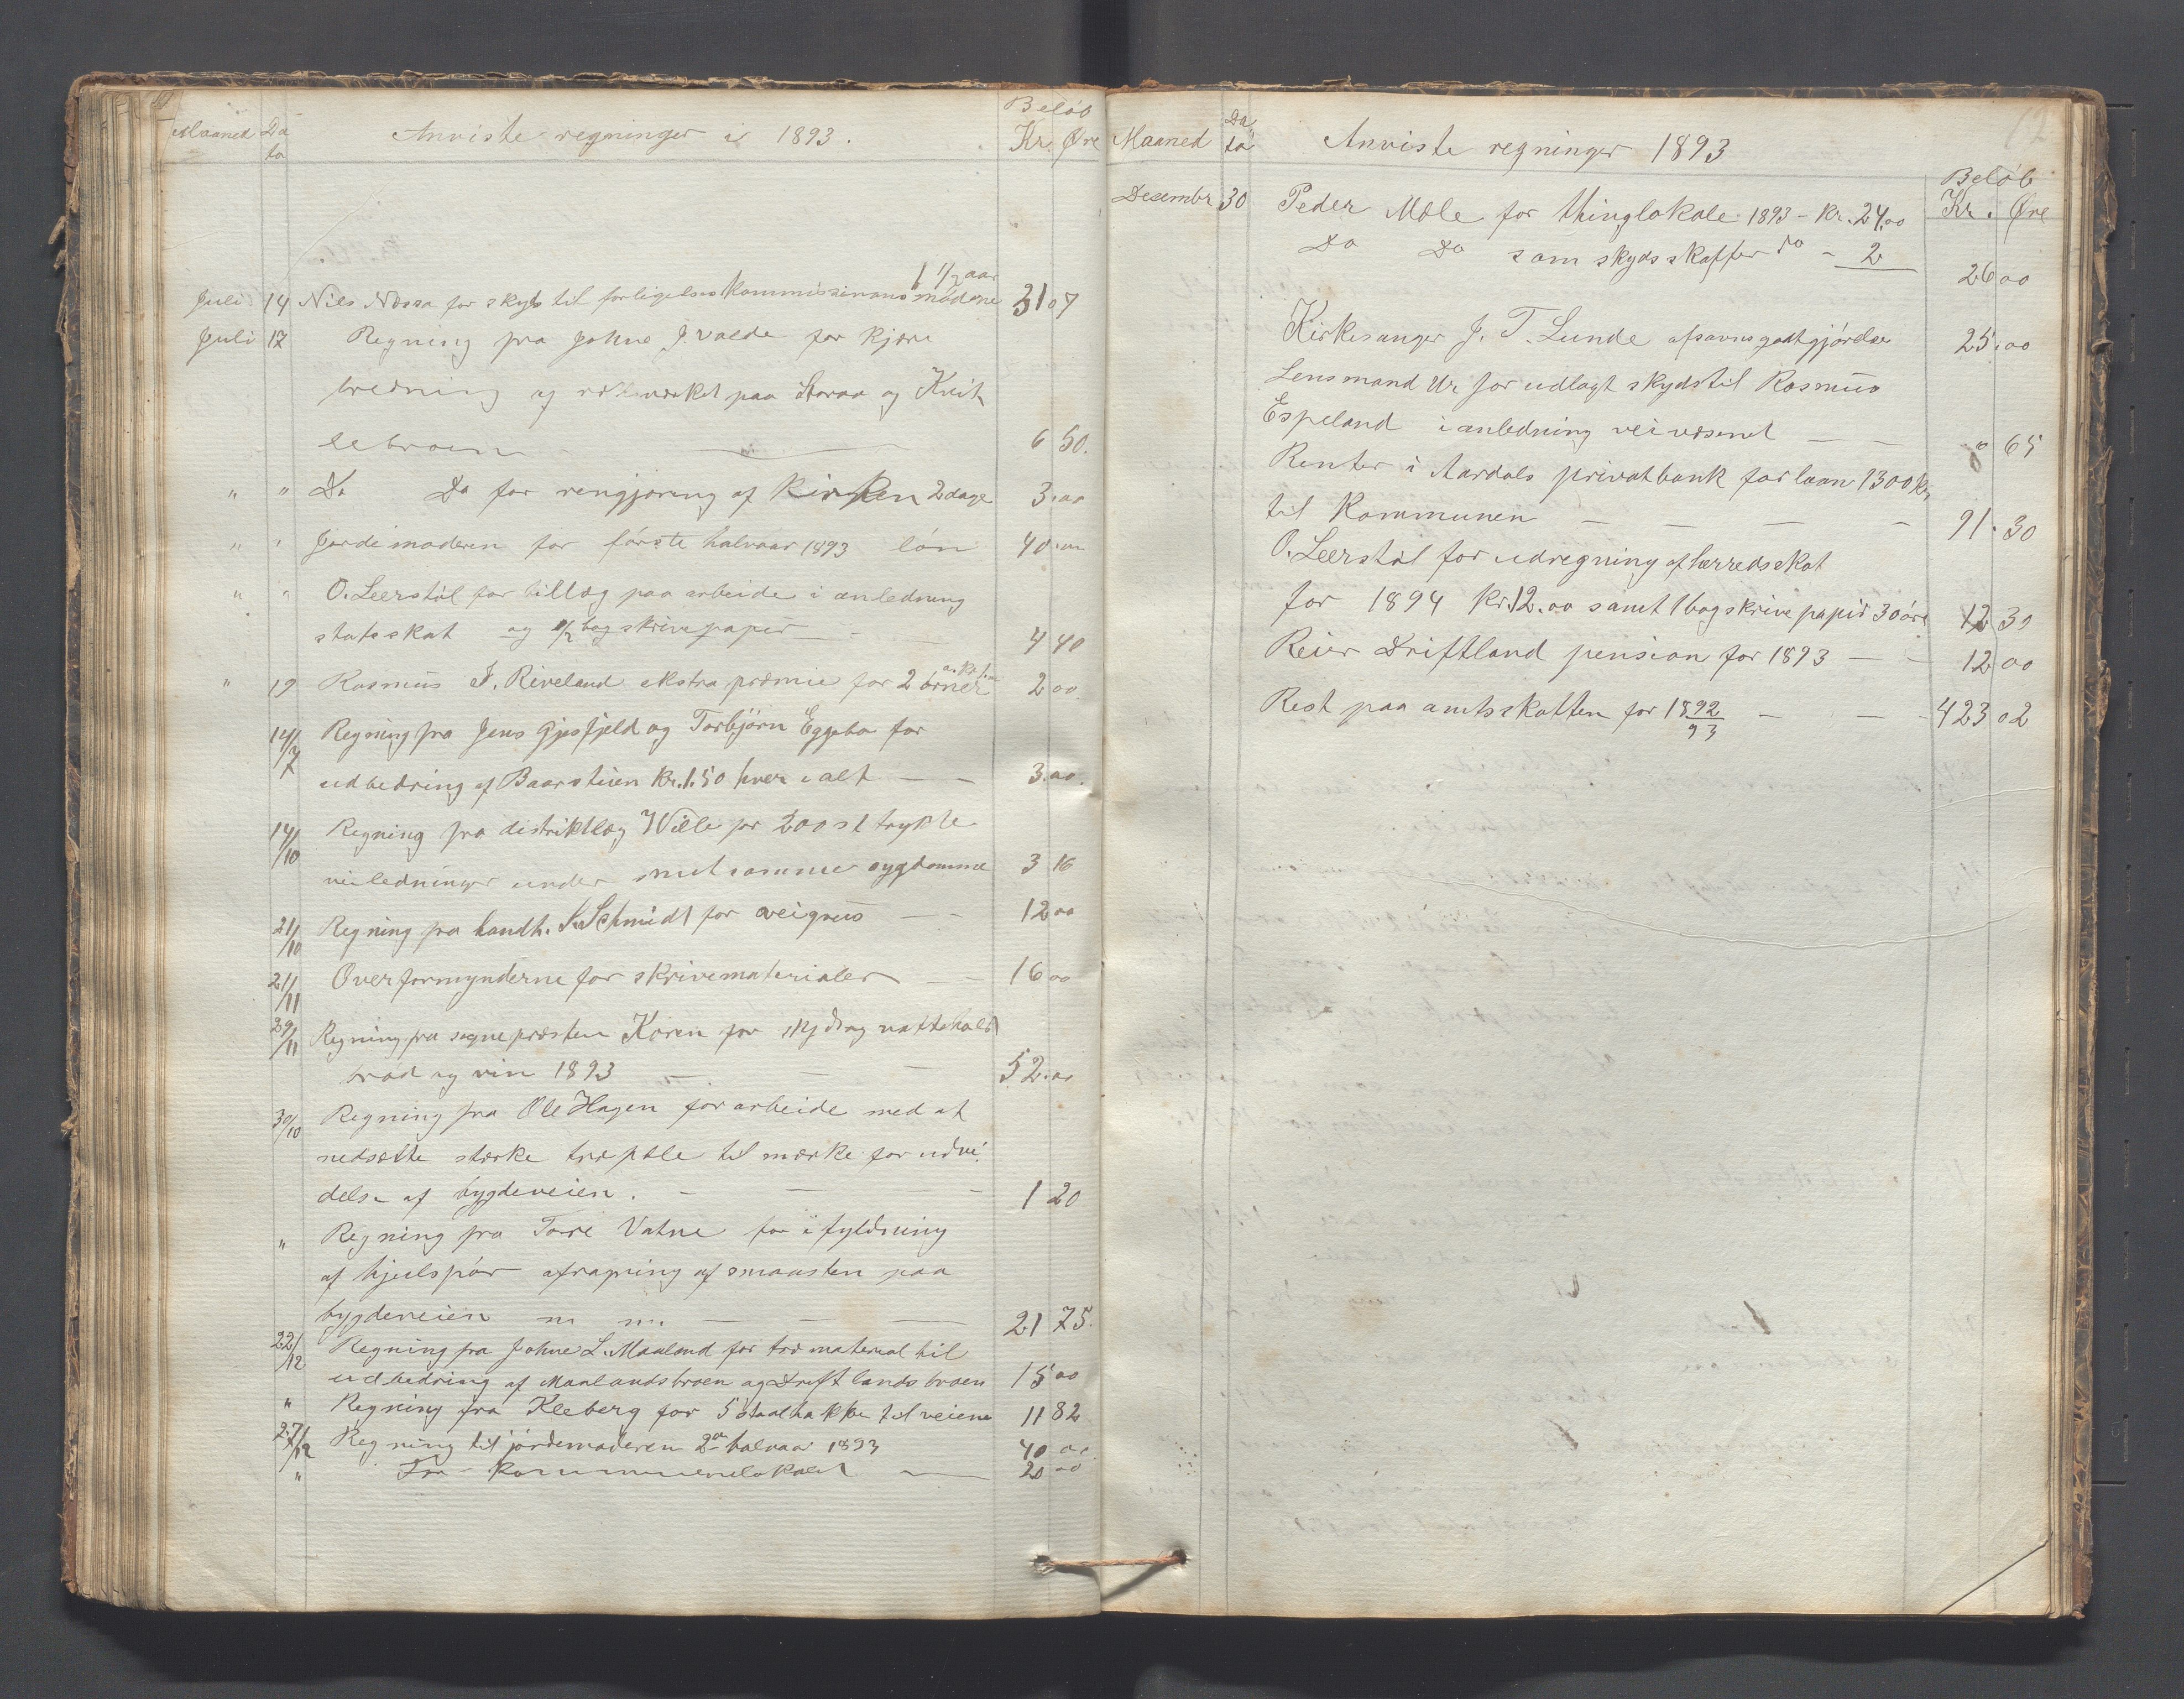 Maaned Da to Anviste regninger i 1893. Beløb Kr. Øre
i 1/2 aar
Juli 14 Nils Nessa for skyds til forligelses kommissionens møderne 31 07
Juli 17 Regning fra Johne J. Valde for kjøre
bredning og paa Storaa og Kvit
lebroen 6 50.
" " Do Do for rengjøring af Kirken 2 dage 3.00
" " Jordemoderen for første halvaar 1893 løn 40.00
" " O. Leerstøl for tillæg paa arbeide i anledning
statsskat og 1/2 bog skrivepapir 4 40
" 19 Rasmus J. Riveland ekstra præmie for 2 ørner a. kr. 1.00 2 00.
14/7 Regning fra Jens Gjesfjeld og Torbjørn Eggebø for
udbedring af Baarstien Kr. 1.50 hver ialt 3.00.
14/10 Regning fra distriktlæg Wille for 200 st trykte
veiledninger under smitsomme sygdomme 3 16
21/10 Regning fra handh. Schmidt for veigrus 12 00
21/11 Overformynderne for skrivematerialer 16 00
29/11 Regning fra sognepræsten Koren for skyds og nattehold
brød og vin 1893 52.00
30/10 Regning fra Ole Hagen for arbeide med at
nedsætte stærke træpæle til mærke for udvi
delse af bygdeveien. 1 20
" Regning fra Tore Vatne for ifyldning
af hjulspor afrapning af smaasten paa
bygdeveien m m. 21 75.
22/12 Regning fra Johne L. Maaland for træmaterial til
udbedring af Maalandsbroen og Driftlandsbroen 15 00
" Regning fra Kleberg for 5 staalhakke til veiene 11 82
27/12 Regning til jordemoderen 2det halvaar 1893 40 00
" For kommunelokalet 20 00
12
Maaned Da to Anviste regninger 1893
Beløb
Kr. Øre
Desembr 30 Peder Mæle for thinglokale 1893 - kr. 24.00
Do Do som skydsskaffer do - 2
26 00
Kirkesanger J. T. Lunde afsavnsgodtgjørelse 25.00
Lensmand Ur for udlagt skyds til Rasmus
Espeland i anledning veivæsenet " 65
Renter i Aardals privatbank for laan 1300 Kr.
til Kommunen 91.30
O. Leerstøl for udregning af herredsskat
for 1894 kr. 12.00 samt 1 bog skrivepapir 30 øre 12 30
Reier Driftland pension for 1893 12 00
Rest paa amtsskatten for 1892/93 423 02